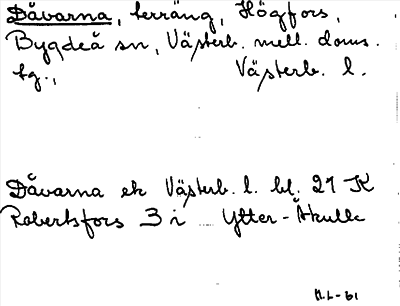 Dåvarna, terräng, Högfors,
Bygdeå sn, Västerb. mell. doms.
tg., Västerb. l.
Dåvarna ek Västerb. l. bl. 21 K
Robertsfors 3 i Ytter-Åkulla
H.L-61